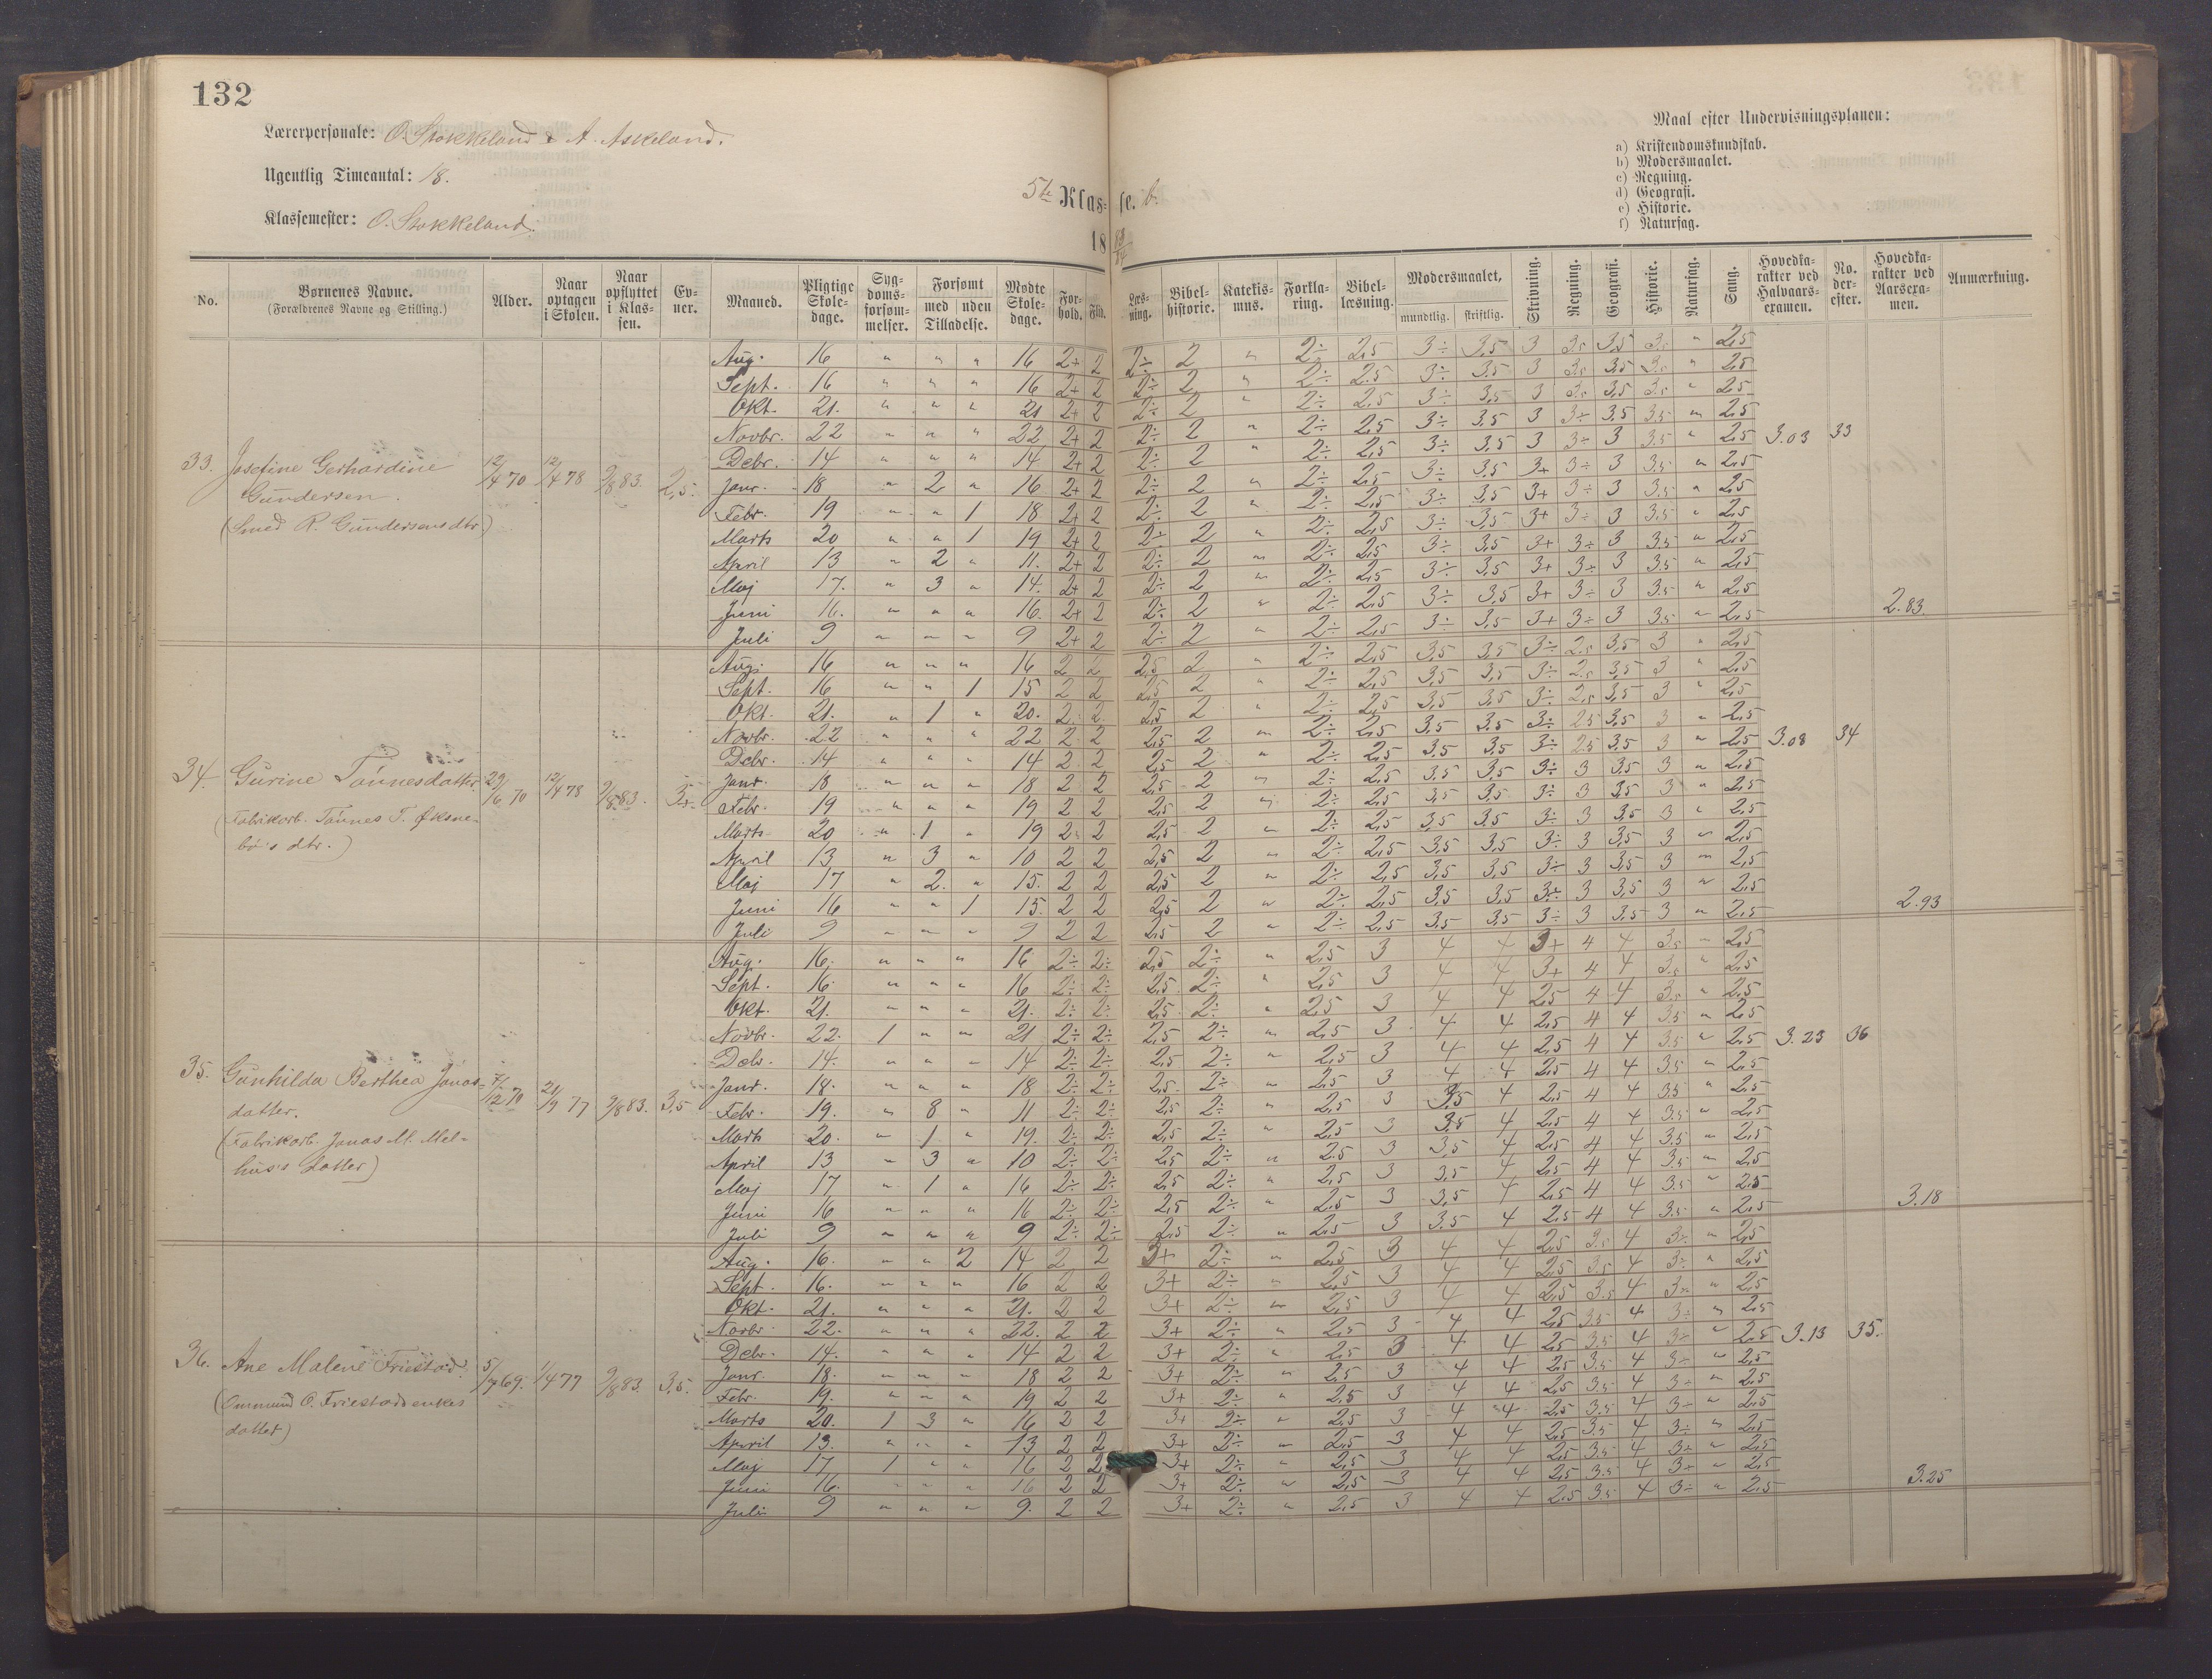 132
Lærerpersonale: O. Stokkeland & A. Askeland.
Ugentlig Timeantal: 18.
Klassemester: O. Stokkeland.
5te Klas- se. b.
18 83/84
Maal efter Undervisningsplanen:
a) Kristendomskundskab.
b) Modersmaalet.
c) Regning.
d) Geografi.
e) Historie.
f) Naturfag.
No. | Børnenes Navne. (Forældrenes Navne og Stilling.) | Alder. | Naar optagen i Skolen. | Naar opflyttet i Klassen. | Evner. | Maaned. | Pligtige Skoledage. | Sygdomsforsømmelser. | Forsømt med Tilladelse. | Forsømt uden Tilladelse. | Mødte Skoledage. | Forhold. | Flid. | Læsning. | Bibelhistorie. | Katekismus. | Forklaring. | Bibellæsning. | Modersmaalet, mundtlig. | skriftlig. | Skrivning. | Regning. | Geografi. | Historie. | Naturfag. | Sang. | Hovedkarakter ved Halvaarsexamen. | No. derefter. | Hovedkarakter ved Aarsexamen. | Anmærkning.
33. Josefine Gerhardine Gundersen. (Smed R. Gundersens dtr.) 12/4 70 12/4 78 9/8 83. 2,5.
Aug. 16 " " " 16 2+ 2 2÷ 2 " 2÷ 2,5 3÷ 3,5 3 3,5 3,5 3,5 " 2,5
Sept. 16 " " " 16 2+ 2 2÷ 2 " 2÷ 2,5 3÷ 3,5 3 3,5 3,5 3,5 " 2,5
Okt. 21. " " " 21 2+ 2 2÷ 2 " 2÷ 2,5 3÷ 3,5 3 3,5 3,5 3,5 " 2,5
Novbr. 22 " " " 22 2+ 2 2÷ 2 " 2÷ 2,5 3÷ 3,5 3 3÷ 3,5 3,5 " 2,5
Debr. 14 " " " 14 2+ 2 2÷ 2 " 2÷ 2,5 3÷ 3,5 3 3÷ 3 3,5 " 2,5 3.03 33
Janr. 18 " 2 " 16 2+ 2 2÷ 2 " 2÷ 2,5 3÷ 3,5 3+ 3÷ 3 3,5 " 2,5
Febr. 19 " " 1 18 2+ 2 2÷ 2 " 2÷ 2,5 3÷ 3,5 3+ 3÷ 3 3,5 " 2,5
Marts 20 " " 1 19 2+ 2 2÷ 2 " 2÷ 2,5 3÷ 3,5 3+ 3÷ 3 3,5 " 2,5
April 13 " 2 " 11. 2+ 2 2÷ 2 " 2÷ 2,5 3÷ 3,5 3+ 3÷ 3 3,5 " 2,5
Maj 17. " 3 " 14. 2+ 2 2÷ 2 " 2÷ 2,5 3÷ 3,5 3+ 3÷ 3 3,5 " 2,5
Juni 16. " " " 16. 2+ 2 2÷ 2 " 2÷ 2,5 3÷ 3,5 3+ 3÷ 3 3,5 " 2,5 2.83
Juli 9 " " " 9 2+ 2 2÷ 2 " 2÷ 2,5 3÷ 3,5 3+ 3÷ 3 3,5 " 2,5
34. Gurine Tønnesdatter (Fabrikarb. Tønnes T. Øksnebø's dtr.) 29/6 70 12/4 78 9/8 83. 3+.
Aug. 16 " " " 16 2 2 2,5 2 " 2÷ 2,5 3,5 3,5 3÷ 2,5 3,5 3 " 2,5
Sept. 16 " " 1 15 2 2 2,5 2 " 2÷ 2,5 3,5 3,5 3÷ 2,5 3,5 3 " 2,5
Okt. 21. " 1 " 20. 2 2 2,5 2 " 2÷ 2,5 3,5 3,5 3÷ 2,5 3,5 3 " 2,5
Novbr. 22 " " " 22 2 2 2,5 2 " 2÷ 2,5 3,5 3,5 3÷ 2,5 3,5 3 " 2,5
Debr. 14 " " " 14 2 2 2,5 2 " 2÷ 2,5 3,5 3,5 3÷ 2,5 3,5 3 " 2,5 3.08 34
Janr. 18 " " " 18 2 2 2,5 2 " 2÷ 2,5 3,5 3,5 3÷ 3 3,5 3 " 2,5
Febr. 19 " " " 19 2 2 2,5 2 " 2÷ 2,5 3,5 3,5 3÷ 3 3,5 3 " 2,5
Marts 20 " 1 " 19 2 2 2,5 2 " 2÷ 2,5 3,5 3,5 3÷ 3 3,5 3 " 2,5
April 13 " 3 " 10 2 2 2,5 2 " 2÷ 2,5 3,5 3,5 3÷ 3 3,5 3 " 2,5
Maj 17 " 2. " 15. 2 2 2,5 2 " 2÷ 2,5 3,5 3,5 3÷ 3 3,5 3 " 2,5
Juni 16 " " 1 15. 2 2 2,5 2 " 2÷ 2,5 3,5 3,5 3÷ 3 3,5 3 " 2,5 2.93
Juli 9 " " " 9 2 2 2,5 2 " 2÷ 2,5 3,5 3,5 3÷ 3 3,5 3 " 2,5
35. Gunhilda Berthea Jonasdatter. (Fabrikarb. Jonas M. Melhus's datter) 7/12 70 21/9 77 9/8 83. 3,5
Aug. 16. " " " 16 2÷ 2÷ 2,5 2÷ " 2,5 3 4 4 3+ 4 4 3,5 " 2,5
Sept. 16 " " " 16 2÷ 2÷ 2,5 2÷ " 2,5 3 4 4 3+ 4 4 3,5 " 2,5
Okt. 21. " " " 21. 2÷ 2÷ 2,5 2÷ " 2,5 3 4 4 2,5 4 4 3,5 " 2,5
Novbr. 22. 1 " " 21 2÷ 2÷ 2,5 2÷ " 2,5 3 4 4 2,5 4 4 3,5 " 2,5
Debr. 14. " " " 14 2÷ 2÷ 2,5 2÷ " 2,5 3 4 4 2,5 4 4 3,5 " 2,5 3.23 36
Janr. 18. " " " 18 2÷ 2÷ 2,5 2÷ " 2,5 3 4 4 2,5 4 4 3,5 " 2,5
Febr. 19. " 8 " 11 2÷ 2÷ 2,5 2÷ " 2,5 3 3,5 4 2,5 4 4 3,5 " 2,5
Marts 20. " 1 " 19. 2÷ 2÷ 2,5 2÷ " 2,5 3 3,5 4 2,5 4 4 3,5 " 2,5
April 13 " 3 " 10 2÷ 2÷ 2,5 2÷ " 2,5 3 3,5 4 2,5 4 4 3,5 " 2,5
Maj 17 " 1 " 16 2÷ 2÷ 2,5 2÷ " 2,5 3 3,5 4 2,5 4 4 3,5 " 2,5
Juni 16 " " " 16 2÷ 2÷ 2,5 2÷ " 2,5 3 3,5 4 2,5 4 4 3,5 " 2,5 3.18
Juli 9 " " " 9 2÷ 2÷ 2,5 2÷ " 2,5 3 3,5 4 2,5 4 4 3,5 " 2,5
36. Ane Malene Friestad. (Ommund O. Friestads enkes datter) 5/7 69. 1/4 77 9/8 83. 3,5.
Aug. 16. " " 2 14 2 2 3+ 2÷ " 2,5 3 4 4 2,5 3,5 4 3÷ " 2,5
Sept. 16. " " " 16 2 2 3+ 2÷ " 2,5 3 4 4 2,5 3,5 4 3÷ " 2,5
Okt. 21. " " " 21. 2 2 3+ 2÷ " 2,5 3 4 4 2,5 3,5 4 3÷ " 2,5
Novbr. 22. " " " 22. 2 2 3+ 2÷ " 2,5 3 4 4 2,5 3,5 4 3÷ " 2,5
Debr. 14. " " " 14 2 2 3+ 2÷ " 2,5 3 4 4 2,5 3,5 4 3÷ " 2,5 3.13 35.
Janr. 18. " " " 18 2 2 3+ 2÷ " 2,5 3 4 4 2,5 3,5 4 3÷ " 2,5
Febr. 19. " " " 19 2 2 3+ 2÷ " 2,5 3 4 4 2,5 3,5 4 3÷ " 2,5
Marts 20. 1 3 " 16 2 2 3+ 2÷ " 2,5 3 4 4 2,5 3,5 4 3÷ " 2,5
April 13. " " " 13 2 2 3+ 2÷ " 2,5 3 4 4 2,5 3,5 4 3÷ " 2,5
Maj 17 1 " " 16 2 2 3+ 2÷ " 2,5 3 4 4 2,5 3,5 4 3÷ " 2,5
Juni 16. " " " 16 2 2 3+ 2÷ " 2,5 3 4 4 2,5 3,5 4 3÷ " 2,5 3.25
Juli 9 " " " 9. 2 2 3+ 2÷ " 2,5 3 4 4 2,5 3,5 4 3÷ " 2,5